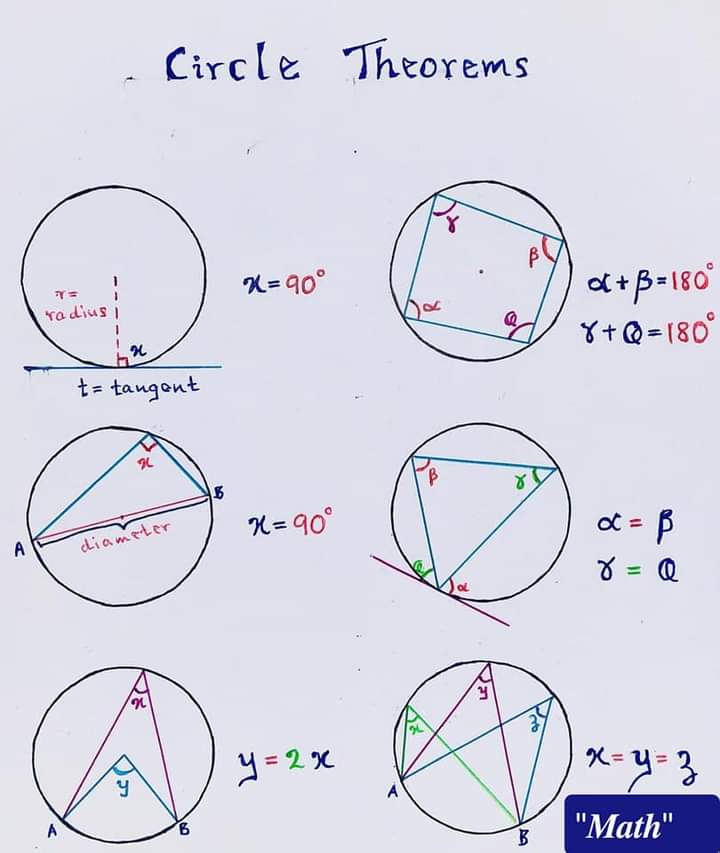 Circle Theorems
r=
radius
x
t= tangent
x= 90°
γ
β
α
Q
α+β=180°
γ+Q=180°
x
A
B
diameter
x= 90°
β
γ
Q
α
α = β
γ = Q
x
y
A
B
y = 2x
x
y
z
A
B
x=y=z
"Math"